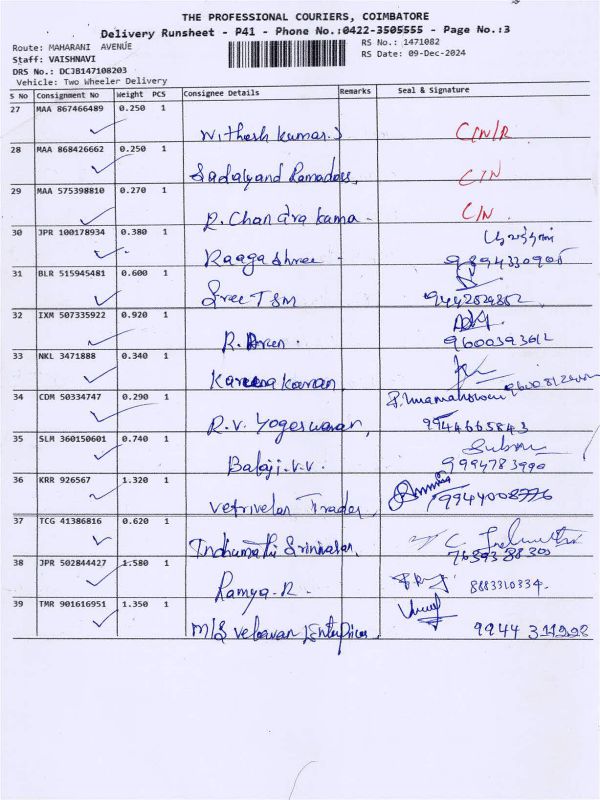 THE PROFESSIONAL COURIERS, COIMBATORE
Delivery Runsheet - P41 - Phone No.:0422-3505555 - Page No.:3
Route: MAHARANI AVENUE RS No.: 1471082
Staff: VAISHNAVI RS Date: 09-Dec-2024
DRS No.: DCJB147108203
Vehicle: Two Wheeler Delivery
S No Consignment No Weight PCS Consignee Details Remarks Seal & Signature
27 MAA 867466489 0.250 1
Withesh Kumar.S C/N/R
28 MAA 868426662 0.250 1
Ramadoss, C/N
29 MAA 575398810 0.270 1
R. Chandra Kama - C/N.
30 JPR 100178934 0.380 1
Raaga Shree - 9894330905
31 BLR 515945481 0.600 1
Sree TSM
32 IXM 507335922 0.920 1
R. 9600393612
33 NKL 3471888 0.340 1
34 CDM 50334747 0.290 1
R.V. Yogeswaran, 9944665843
35 SLM 360150601 0.740 1
Balaji.V.V. 9994783990
36 KRR 926567 1.320 1
Vetrivelan Trader,
37 TCG 41386816 0.620 1
Indhumathi Srinivasan,
38 JPR 502844427 1.580 1
Ramya.R. 8883310334.
39 TMR 901616951 1.350 1
M/S Velavan Enterprises 9944 311998